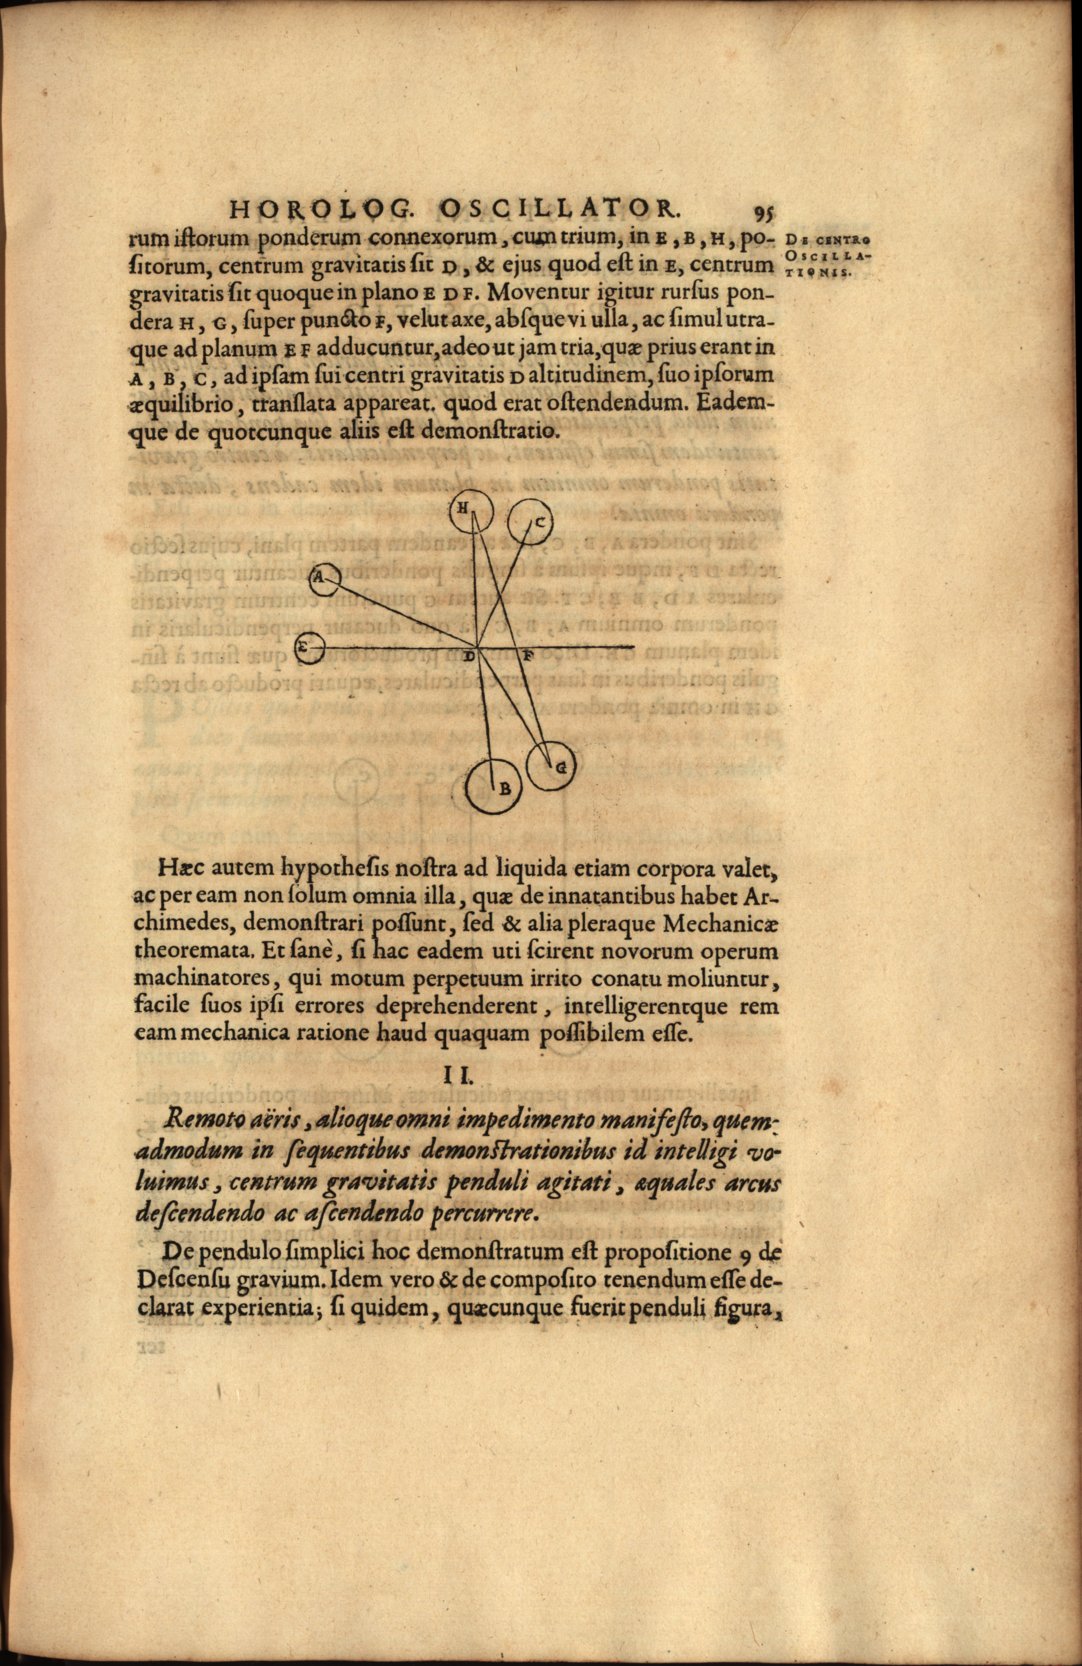 HOROLOG. OSCILLATOR. 95
rum iſtorum ponderum connexorum, cum trium, in E, B, H, po-
ſitorum, centrum gravitatis ſit D, & ejus quod eſt in E, centrum
gravitatis ſit quoque in plano E D F. Moventur igitur rurſus pon-
dera H, G, ſuper puncto F, velut axe, abſque vi ulla, ac ſimul utra-
que ad planum E F adducuntur, adeo ut jam tria, quæ prius erant in
A, B, C, ad ipſam ſui centri gravitatis D altitudinem, ſuo ipſorum
æquilibrio, tranſlata appareat. quod erat oſtendendum. Eadem-
que de quotcunque aliis eſt demonſtratio.
DE CENTRO
OSCILLA-
TIONIS.
H
C
A
E
D
F
G
B
Hæc autem hypotheſis noſtra ad liquida etiam corpora valet,
ac per eam non ſolum omnia illa, quæ de innatantibus habet Ar-
chimedes, demonſtrari poſſunt, ſed & alia pleraque Mechanicæ
theoremata. Et ſanè, ſi hac eadem uti ſcirent novorum operum
machinatores, qui motum perpetuum irrito conatu moliuntur,
facile ſuos ipſi errores deprehenderent, intelligerentque rem
eam mechanica ratione haud quaquam poſſibilem eſſe.
II.
Remoto aëris, alioque omni impedimento manifeſto, quem-
admodum in ſequentibus demonſtrationibus id intelligi vo-
luimus, centrum gravitatis penduli agitati, æquales arcus
deſcendendo ac aſcendendo percurrere.
De pendulo ſimplici hoc demonſtratum eſt propoſitione 9 de
Deſcenſu gravium. Idem vero & de compoſito tenendum eſſe de-
clarat experientia; ſi quidem, quæcunque fuerit penduli figura,